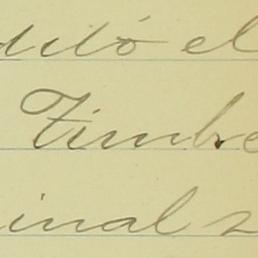 ditó el
Timbre
inal